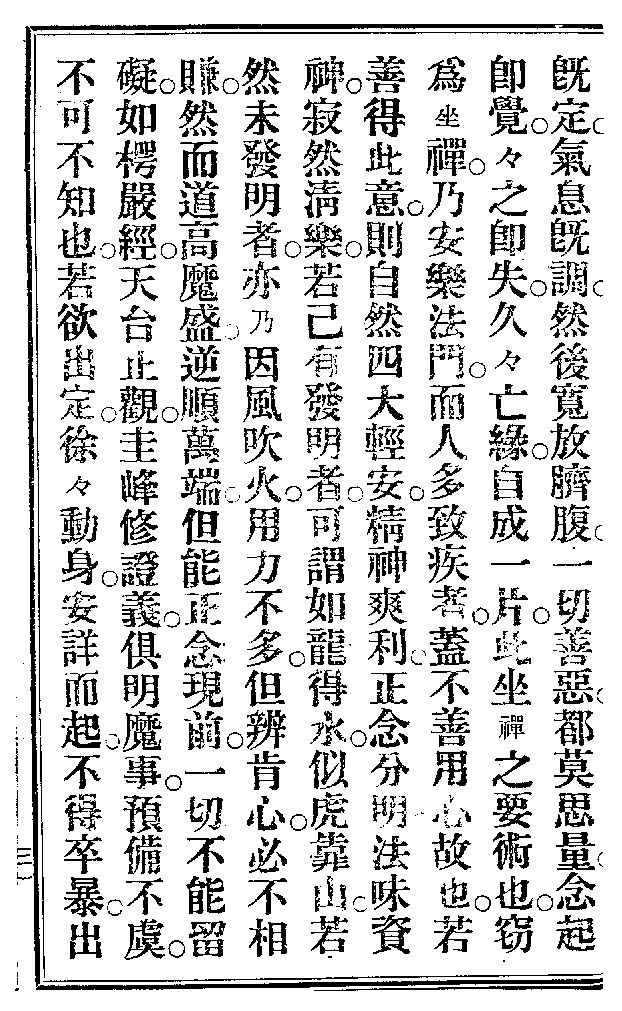 旣定。氣息旣調。然後寬放臍腹。一切善惡。都莫思量。念起
卽覺。々之卽失。久々亡緣。自成一片。此坐禪之要術也。窃
爲坐禪。乃安樂法門。而人多致疾者。蓋不善用心故也。若
善得此意。則自然四大輕安。精神爽利。正念分明。法味資
神。寂然淸樂。若已有發明者。可謂如龍得水。似虎靠山。若
然未發明者。亦乃因風吹火。用力不多。但辨肯心。必不相
賺。然而道高魔盛。逆順萬端。但能正念現前。一切不能留
礙。如楞嚴經。天台止觀。圭峰修證義。俱明魔事。預備不虞。
不可不知也。若欲出定。徐々動身。安詳而起。不得卒暴。出
三